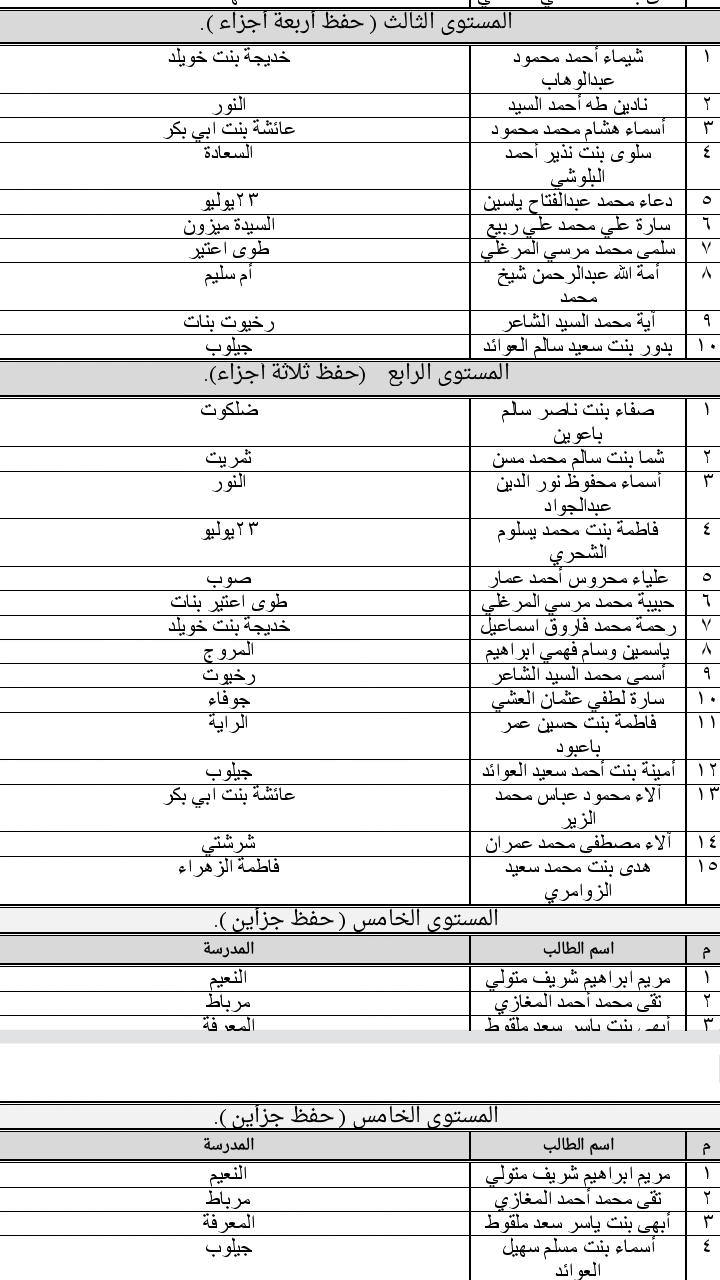 المستوى الثالث ( حفظ أربعة أجزاء ).
١ شيماء أحمد محمود خديجة بنت خويلد
عبدالوهاب
٢ نادين طه أحمد السيد النور
٣ أسماء هشام محمد محمود عائشة بنت ابي بكر
٤ سلوى بنت نذير أحمد السعادة
البلوشي
٥ دعاء محمد عبدالفتاح ياسين ٢٣يوليو
٦ سارة علي محمد علي ربيع السيدة ميزون
٧ سلمى محمد مرسي المرغلي طوى اعتير
٨ أمة الله عبدالرحمن شيخ أم سليم
محمد
٩ آية محمد السيد الشاعر رخيوت بنات
١٠ بدور بنت سعيد سالم العوائد جيلوب
المستوى الرابع (حفظ ثلاثة أجزاء).
١ صفاء بنت ناصر سالم ضلكوت
باعوين
٢ شما بنت سالم محمد مسن ثمريت
٣ أسماء محفوظ نور الدين النور
عبدالجواد
٤ فاطمة بنت محمد يسلوم ٢٣يوليو
الشحري
٥ علياء محروس أحمد عمار صوب
٦ حبيبة محمد مرسي المرغلي طوى اعتير بنات
٧ رحمة محمد فاروق اسماعيل خديجة بنت خويلد
٨ ياسمين وسام فهمي ابراهيم المروج
٩ أسمى محمد السيد الشاعر رخيوت
١٠ سارة لطفي عثمان العشي جوفاء
١١ فاطمة بنت حسين عمر الراية
باعبود
١٢ أمينة بنت أحمد سعيد العوائد جيلوب
١٣ آلاء محمود عباس محمد عائشة بنت ابي بكر
الزير
١٤ آلاء مصطفى محمد عمران شرشتي
١٥ هدى بنت محمد سعيد فاطمة الزهراء
الزوامري
المستوى الخامس ( حفظ جزأين ).
م اسم الطالب المدرسة
١ مريم ابراهيم شريف متولي النعيم
٢ تقى محمد أحمد المغازي مرباط
٣ أبهى بنت ياسر سعد ملقوط المعرفة
المستوى الخامس ( حفظ جزأين ).
م اسم الطالب المدرسة
١ مريم ابراهيم شريف متولي النعيم
٢ تقى محمد أحمد المغازي مرباط
٣ أبهى بنت ياسر سعد ملقوط المعرفة
٤ أسماء بنت مسلم سهيل جيلوب
العوائد